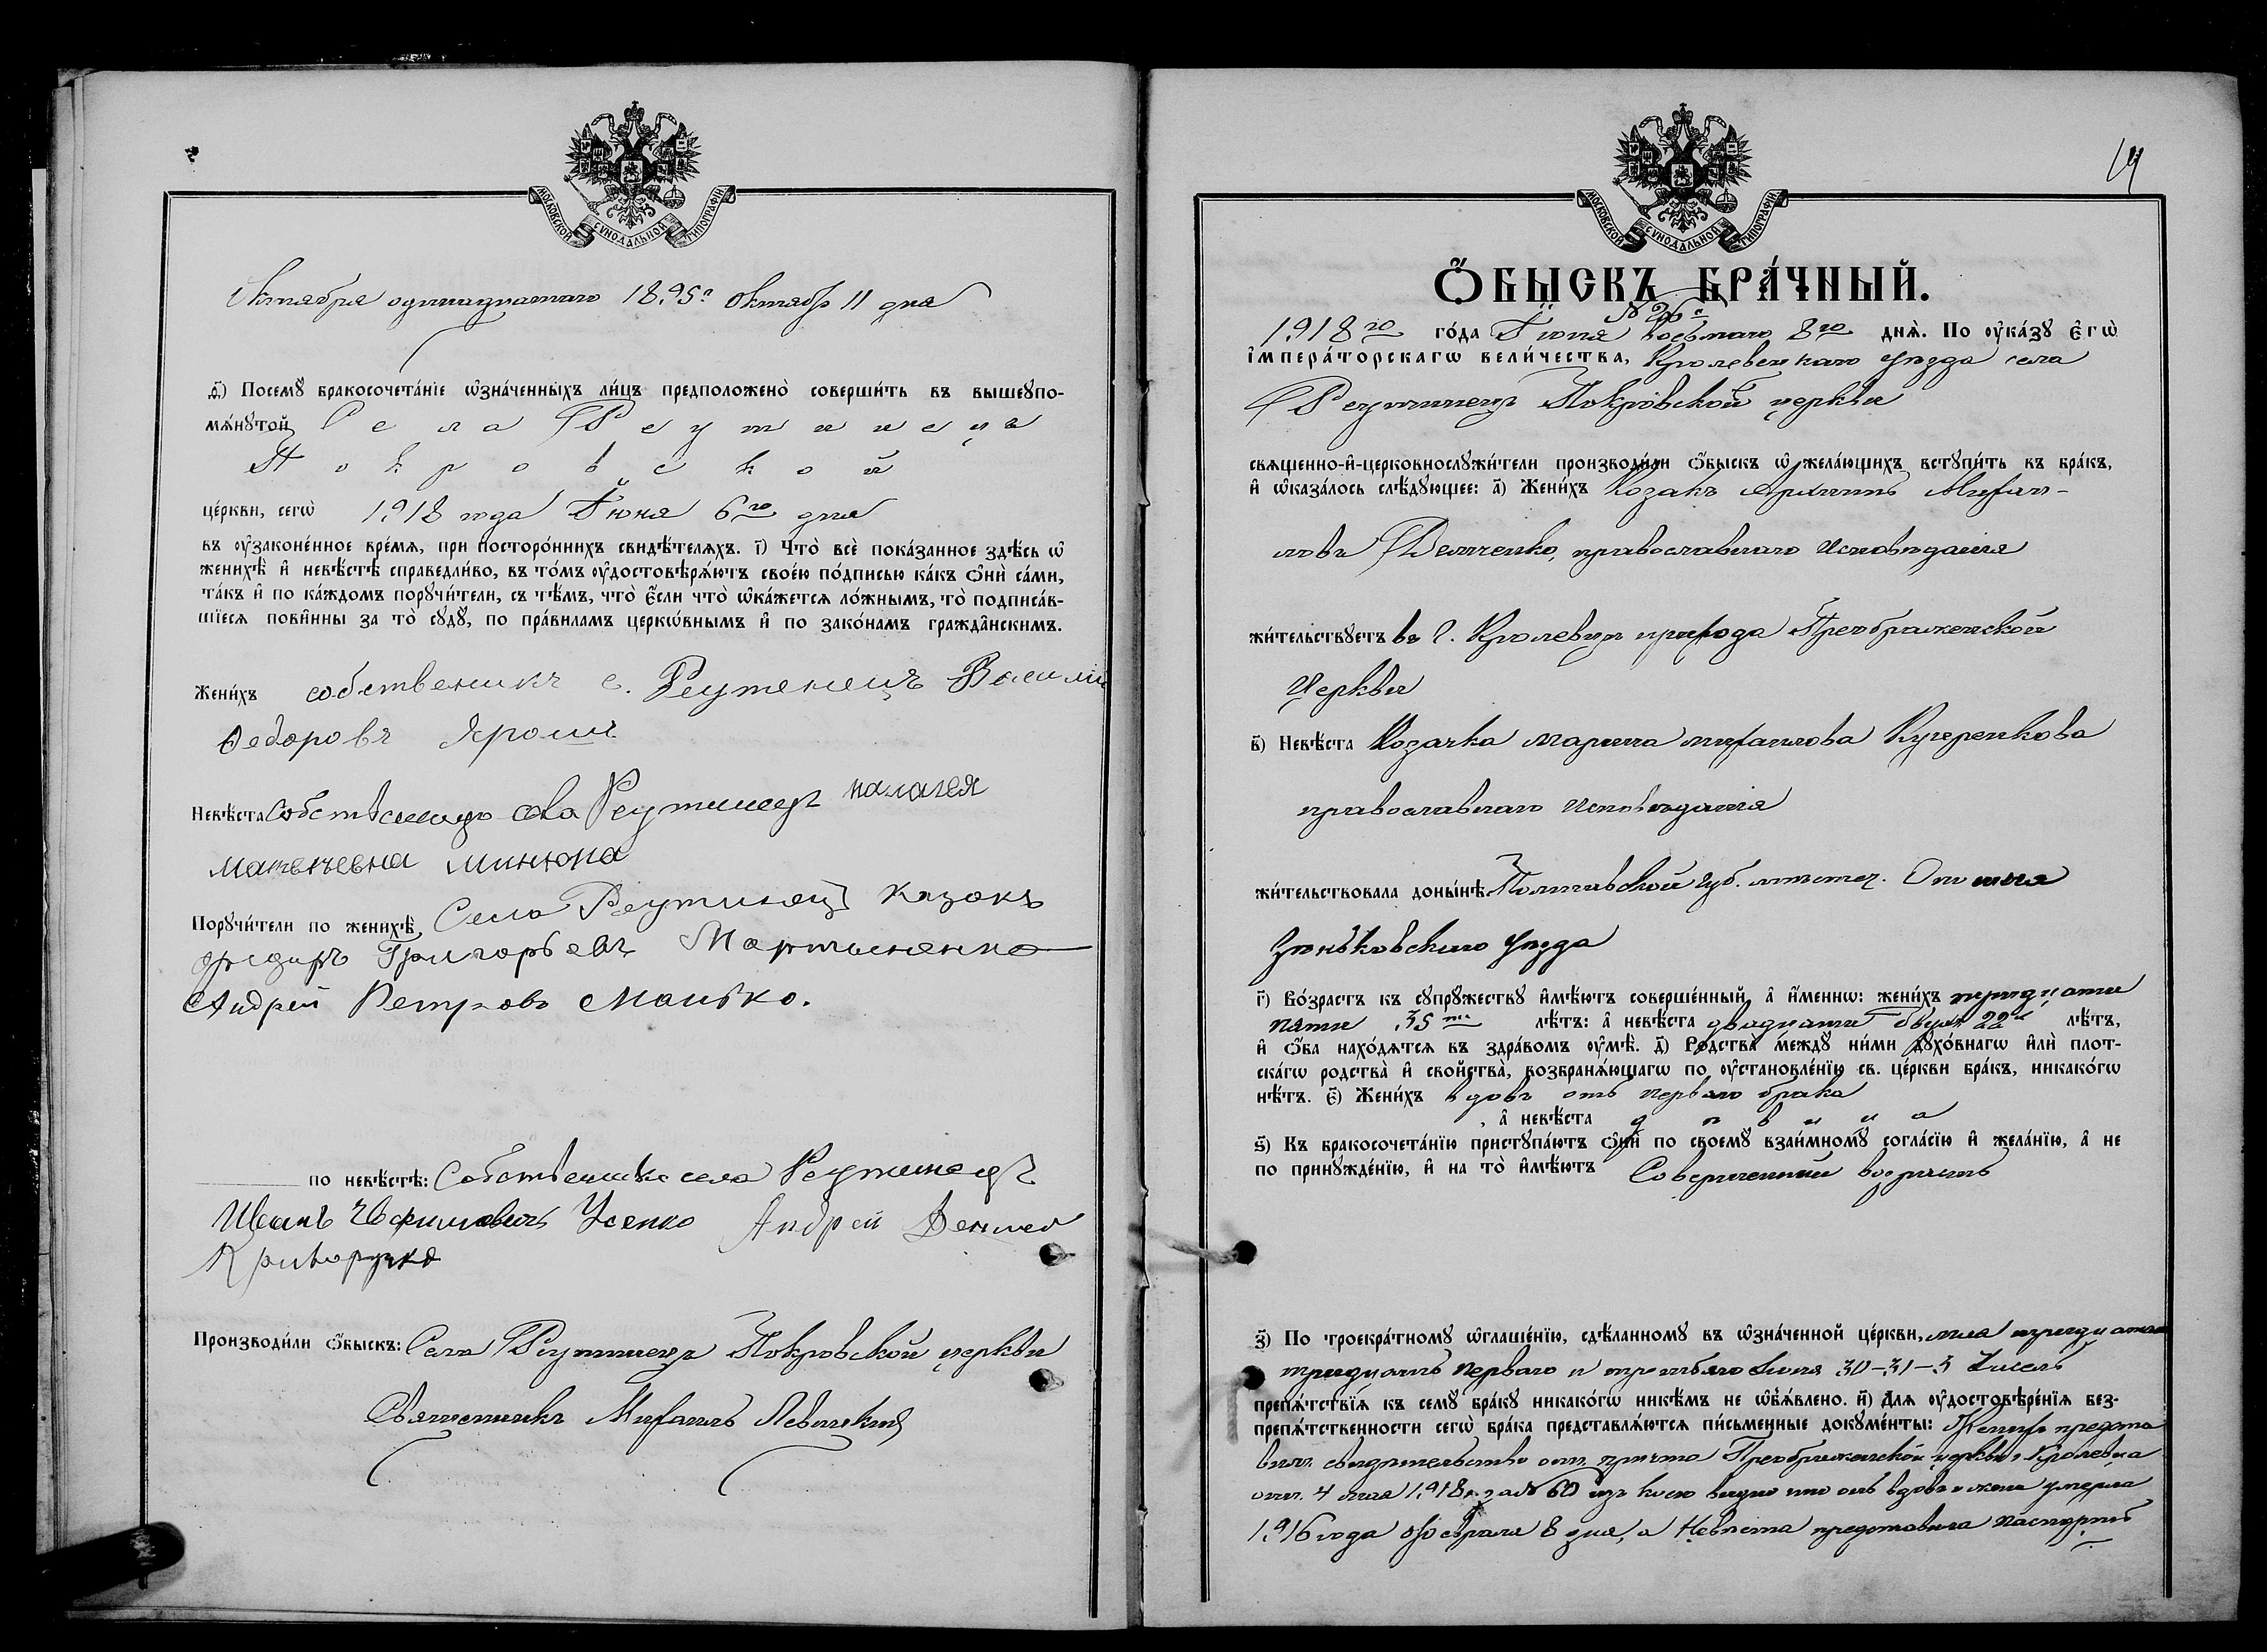 МОСКОВСКОЙ СѴНОДАЛЬНОЙ ТИПОГРАФІИ
Октября одиннадцатаго 1895 г. Октября 11 дня
д҃) Посемꙋ̀ бракосочета́нїе ѡ҆зна́ченныхъ ли́цъ предположено̀ соверши́ть въ вышеꙋпо-
мѧ́нꙋтой Села Реутинецъ
Покровской
це́ркви, сегѡ̀ 1918 года Іюня 6го дня
въ ᲂу҆зако́ненное вре́мѧ, при посторо́ннихъ свидѣ́телѧхъ. і҃) Что̀ всѐ пока́занное здѣ́сь ѡ҆
женихѣ̀ и҆ невѣ́стѣ справедли́во, въ то́мъ ᲂу҆достовѣрѧ́ютъ свое́ю по́дписью ка́къ ѻ҆нѝ са́ми,
та́къ и҆ по ка́ждомъ порꙋчи́тели, съ тѣ́мъ, что̀ є҆́сли что̀ ѡ҆ка́жетсѧ ло́жнымъ, то̀ подписа́в-
шїесѧ пови́нны за то̀ сꙋдꙋ̀, по пра́виламъ церко́внымъ и҆ по зако́намъ гражда̂нскимъ.
Жени́хъ собственикъ с. Реутенецъ Василій
Федоровъ Ярошъ
Невѣ́ста Собственица села Реутинецъ палагея
матвеевна минюна
Порꙋчи́тели по женихѣ̀ Села Реутинецъ казакъ
Федиръ Григорьевъ Мартыненко
Андрей Петровъ Манько.
по невѣ́стѣ: Собственики села Реутинецъ
Иванъ Усенко Андрей
Криворучко
Производи́ли ѻ҆́быскъ: Села Реутинецъ Покровской церкви
Священникъ Михаилъ Левицкій
14
МОСКОВСКОЙ СѴНОДАЛЬНОЙ ТИПОГРАФІИ
Ѻ҆́БЫСКЪ БРА́ЧНЫЙ.
№ 26й
1918го го́да Іюня восьмаго 8го днѧ̀. По ᲂу҆ка́зꙋ Є҆гѡ̀
І҆мпера́торскагѡ вели́чества, Кролевецкаго уѣзда села
Реутинецъ Покровской церкви
свѧще́нно-и҆-церковнослꙋжи́тели производи́ли ѻ҆́быскъ ѡ҆ жела́ющихъ встꙋпи́ть въ бра́къ,
и҆ ѡ҆каза́лось слѣ́дꙋющее: а҃) Жени́хъ Козакъ Архипъ Михаи-
ловъ православнаго исповѣданія
жи́тельствꙋетъ въ г. Кролевцѣ прихода Преображенской
Церкви
в҃) Невѣ́ста Козачка марина михаилова Кучеренкова
православнаго исповѣданія
жи́тельствовала доны́нѣ Полтавской губ. мѣстеч.
Зѣньковскаго уѣзда
г҃) Во́зрастъ къ сꙋпрꙋ́жествꙋ и҆мѣ́ютъ соверше́нный, а҆ и҆́менно: жени́хъ тридцати
пяти 35ти лѣ́тъ: а҆ невѣ́ста двадцати двухъ 22хъ лѣ́тъ,
и҆ ѻ҆́ба нахо́дѧтсѧ въ здра́вомъ ᲂу҆мѣ̀. д҃) Родства̀ ме́ждꙋ ни́ми дꙋхо́внагѡ и҆лѝ плот-
ска́гѡ родства̀ и҆ свойства̀, возбранѧ́ющагѡ по ᲂу҆становле́нїю св. це́ркви бра́къ, никако́гѡ
нѣ́тъ. є҃) Жени́хъ вдовъ отъ перваго брака
, а҆ невѣ́ста дѣвица
ѕ҃) Къ бракосочета́нїю пристꙋпа́ютъ ѻ҆нѝ по своемꙋ̀ взаи́мномꙋ согла́сїю и҆ жела́нїю, а҆ не
по принꙋжде́нїю, и҆ на то̀ и҆мѣ́ютъ Совершенный возрастъ
з҃) По троекра́тномꙋ ѡ҆глаше́нїю, сдѣ́ланномꙋ въ ѡ҆зна́ченной це́ркви, мая тридцатаго
тридцать перваго и третьяго Іюня 30–31–3 Чиселъ
препѧ́тствїѧ къ семꙋ̀ бра́кꙋ никако́гѡ никѣ́мъ не ѡ҆б̾ѧ́влено. и҃) Длѧ ᲂу҆достовѣре́нїѧ без-
препѧ́тственности сегѡ̀ бра́ка представлѧ́ютсѧ пи́сьменные докꙋме́нты: Женихъ предста
вилъ свидѣтельство отъ причта Преображенской церкви г. Кролевца
отъ 4 мая 1918 г. за № 60 изъ коего видно что онъ вдовъ и жена умерла
1916 года февраля 8 дня, а Невѣста представила паспортъ